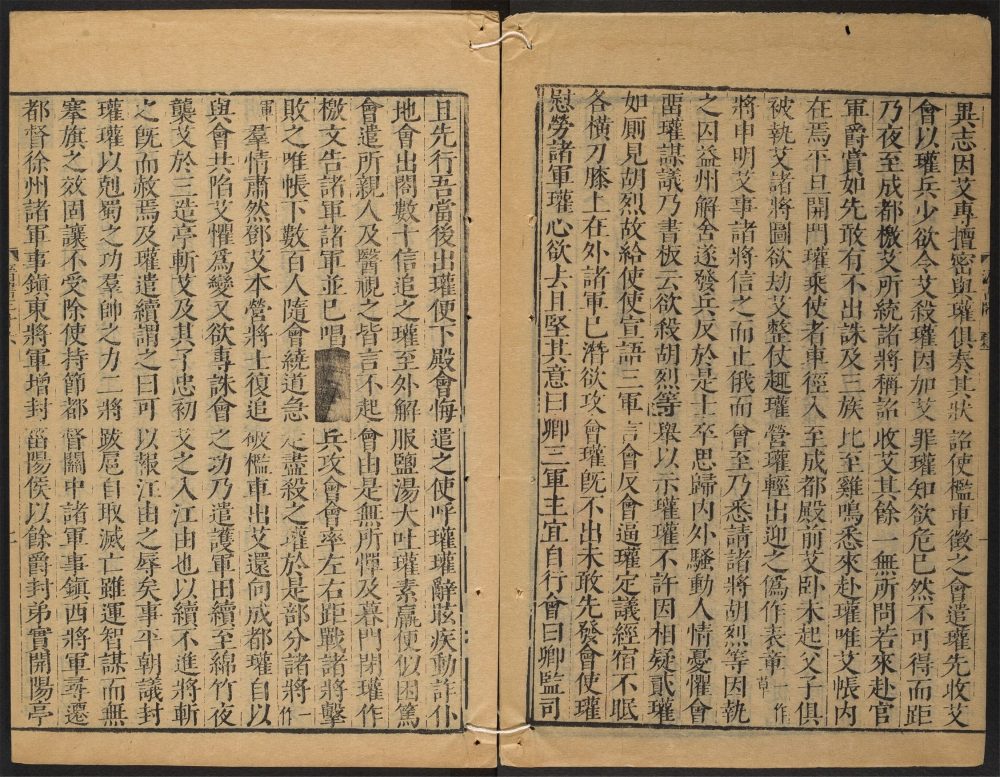 異志因艾專擅密與瓘俱奏其狀詔使檻車徵之會遣瓘先收艾
會以瓘兵少欲令艾殺瓘因加艾罪瓘知欲危己然不可得而距
乃夜至成都檄艾所統諸將稱詔收艾其餘一無所問若來赴官
軍爵賞如先敢有不出誅及三族比至雞鳴悉來赴瓘唯艾帳內
在焉平旦開門瓘乘使者車徑入至成都殿前艾卧未起父子俱
被執艾諸將圖欲劫艾整仗趣瓘營瓘輕出迎之僞作表章一作草
將申明艾事諸將信之而止俄而會至乃悉請諸將胡烈等因執
之囚益州解舍遂發兵反於是士卒思歸內外騷動人情憂懼會
畱瓘謀議乃書板云欲殺胡烈等舉以示瓘瓘不許因相疑貳瓘
如厠見胡烈故給使使宣語三軍言會反會逼瓘定議經宿不眠
各橫刀膝上在外諸軍已潛欲攻會瓘旣不出未敢先發會使瓘
慰勞諸軍瓘心欲去且堅其意曰卿三軍主宜自行會曰卿監司
且先行吾當後出瓘便下殿會悔遣之使呼瓘瓘辭眩疾動詐仆
地會出閤數十信追之瓘至外解服鹽湯大吐瓘素羸便似困篤
會遣所親人及醫視之皆言不起會由是無所憚及暮門閉瓘作
檄文告諸軍諸軍並已唱兵攻會會率左右距戰諸將擊
敗之唯帳下數百人隨會繞道急走盡殺之瓘於是部分諸將一作
軍羣情肅然鄧艾本營將士復追破檻車出艾還向成都瓘自以
與會共陷艾懼爲變又欲專誅會之功乃遣護軍田續至綿竹夜
襲艾於三造亭斬艾及其子忠初艾之入江由也以續不進將斬
之旣而赦焉及瓘遣續謂之曰可以報江由之辱矣事平朝議封
瓘瓘以剋蜀之功羣帥之力二將跋扈自取滅亡雖運智謀而無
搴旗之效固讓不受除使持節都督關中諸軍事鎮西將軍尋遷
都督徐州諸軍事鎮東將軍增封菑陽侯以餘爵封弟實開陽亭